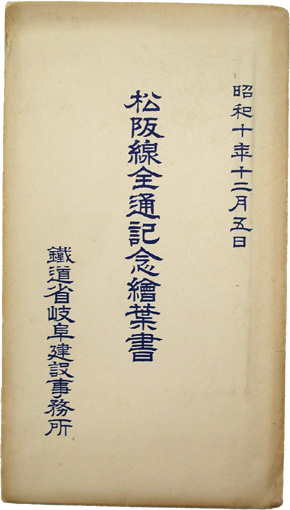 昭和十年十二月五日
松阪線全通記念繪葉書
鐵道省岐阜建設事務所